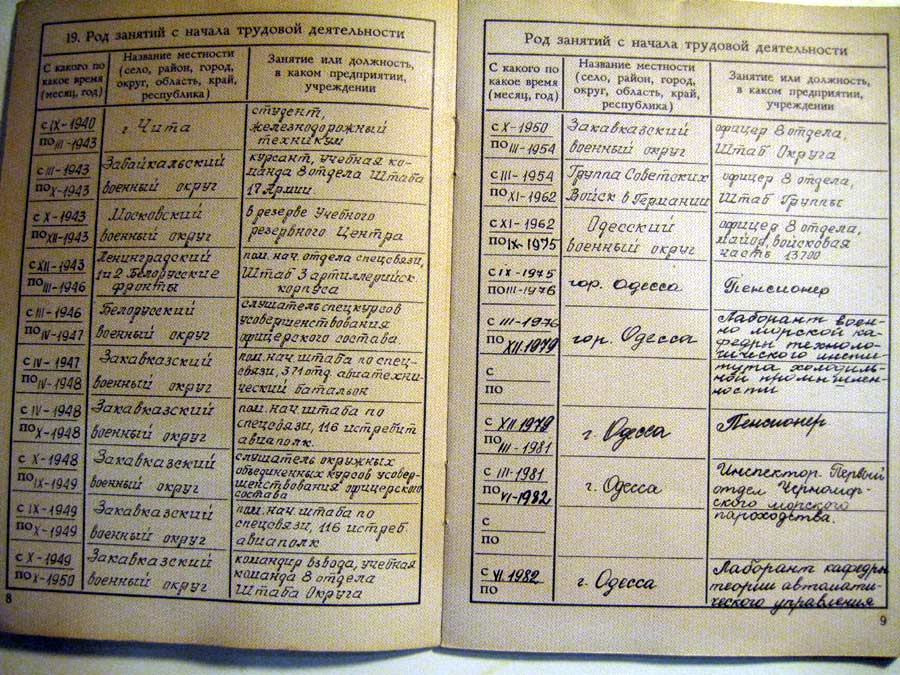 19. Род занятий с начала трудовой деятельности
С какого по
какое время
(месяц, год)
Название местности
(село, район, город,
округ, область, край,
республика)
Занятие или должность,
в каком предприятии,
учреждении
с IX-1940
по III-1943
г. Чита
студент,
железнодорожный
техникум
с III-1943
по X-1943
Забайкальский
военный округ
курсант, учебная ко-
манда 8 отдела Штаба
17 Армии.
с X-1943
по XII-1943
Московский
военный округ
в резерве Учебного
резервного Центра
с XII-1943
по III-1946
Ленинградский
1 и 2 Белорусские
фронты
пом. нач. отдела спецсвязи,
Штаб 3 артиллерийск.
корпуса
с III-1946
по IV-1947
Белорусский
военный округ
слушатель спецкурсов
усовершенствования
офицерского состава.
с IV-1947
по IV-1948
Закавказский
военный округ
пом. нач штаба по спец-
связи, 371 отд. авиатехни-
ческий батальон
с IV-1948
по X-1948
Закавказский
военный округ
пом. нач штаба по
спецсвязи, 116 истребит
авиаполк.
с X-1948
по IX-1949
Закавказский
военный округ
слушатель окружных
объединенных курсов усовер-
шенствования офицерского
состава
с IX-1949
по X-1949
Закавказский
военный округ
пом. нач штаба по
спецсвязи, 116 истреб.
авиаполк
с X-1949
по X-1950
Закавказский
военный округ
командир взвода, учебная
команда 8 отдела
Штаба Округа
8
Род занятий с начала трудовой деятельности
С какого по
какое время
(месяц, год)
Название местности
(село, район, город,
округ, область, край,
республика)
Занятие или должность,
в каком предприятии,
учреждении
с X-1950
по III-1954
Закавказский
военный округ
офицер 8 отдела,
Штаб Округа
с III-1954
по XI-1962
Группа Советских
Войск в Германии
офицер 8 отдела,
Штаб Группы
с XI-1962
по IX-1975
Одесский
военный округ
офицер 8 отдела,
майор, войсковая
часть 13700
с IX-1975
по III-1976
гор. Одесса
Пенсионер
с III-1976
по XII.1979
гор. Одесса
Лаборант воен-
но морской ка-
федры техноло-
гического инсти-
тута холодиль-
ной промышлен-
ности
с
по
с XII 1979
по III-1981
г. Одесса
Пенсионер
с III-1981
по VI-1982
г. Одесса
Инспектор. Первый
отдел Черномор-
ского морского
пароходства.
с
по
с VI.1982
по
г. Одесса
Лаборант кафедры
теории автомати-
ческого управления
9